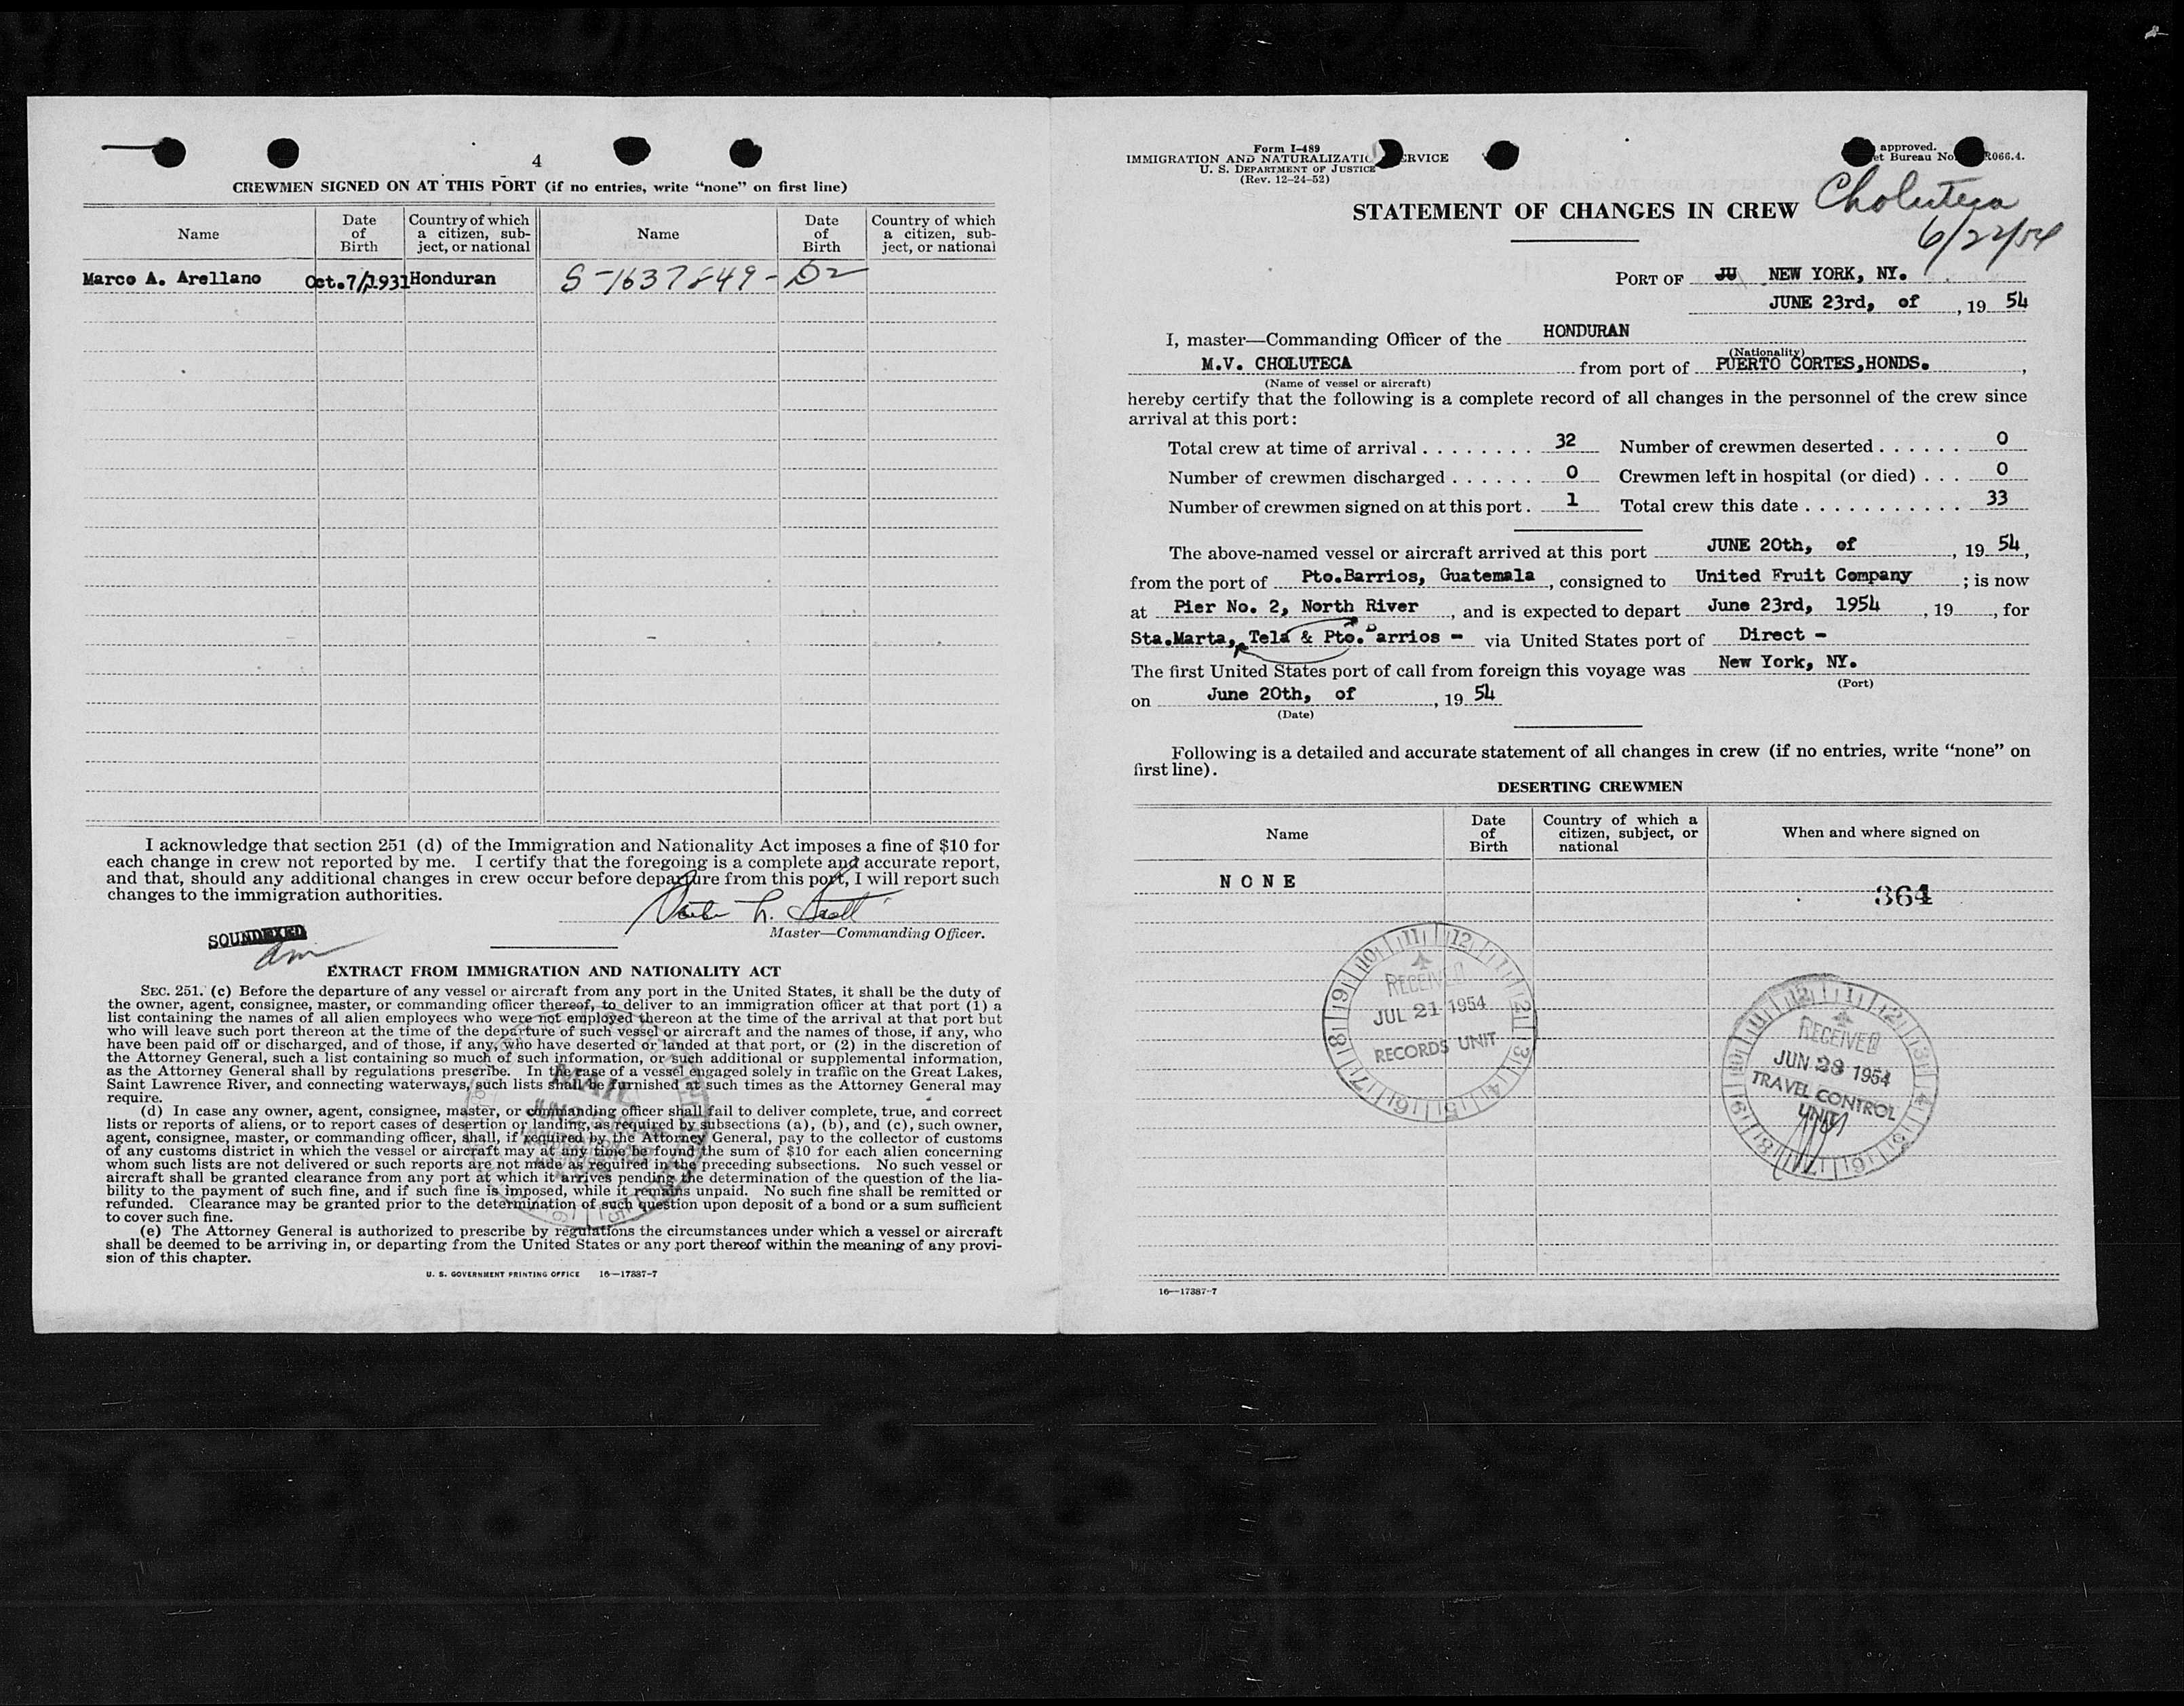 4
CREWMEN SIGNED ON AT THIS PORT (if no entries, write “none” on first line)
Name
Date of Birth
Country of which a citizen, subject, or national
Name
Date of Birth
Country of which a citizen, subject, or national
Marco A. Arellano Oct.7/1931 Honduran S-1637849-D2
I acknowledge that section 251 (d) of the Immigration and Nationality Act imposes a fine of $10 for
each change in crew not reported by me. I certify that the foregoing is a complete and accurate report,
and that, should any additional changes in crew occur before departure from this port, I will report such
changes to the immigration authorities.
Master—Commanding Officer.
SOUNDEXED
EXTRACT FROM IMMIGRATION AND NATIONALITY ACT
SEC. 251. (c) Before the departure of any vessel or aircraft from any port in the United States, it shall be the duty of
the owner, agent, consignee, master, or commanding officer thereof, to deliver to an immigration officer at that port (1) a
list containing the names of all alien employees who were not employed thereon at the time of the arrival at that port but
who will leave such port thereon at the time of the departure of such vessel or aircraft and the names of those, if any, who
have been paid off or discharged, and of those, if any, who have deserted or landed at that port, or (2) in the discretion of
the Attorney General, such a list containing so much of such information, or such additional or supplemental information,
as the Attorney General shall by regulations prescribe. In the case of a vessel engaged solely in traffic on the Great Lakes,
Saint Lawrence River, and connecting waterways, such lists shall be furnished at such times as the Attorney General may
require.
(d) In case any owner, agent, consignee, master, or commanding officer shall fail to deliver complete, true, and correct
lists or reports of aliens, or to report cases of desertion or landing, as required by subsections (a), (b), and (c), such owner,
agent, consignee, master, or commanding officer, shall, if required by the Attorney General, pay to the collector of customs
of any customs district in which the vessel or aircraft may at any time be found the sum of $10 for each alien concerning
whom such lists are not delivered or such reports are not made as required in the preceding subsections. No such vessel or
aircraft shall be granted clearance from any port at which it arrives pending the determination of the question of the lia-
bility to the payment of such fine, and if such fine is imposed, while it remains unpaid. No such fine shall be remitted or
refunded. Clearance may be granted prior to the determination of such question upon deposit of a bond or a sum sufficient
to cover such fine.
(e) The Attorney General is authorized to prescribe by regulations the circumstances under which a vessel or aircraft
shall be deemed to be arriving in, or departing from the United States or any port thereof within the meaning of any provi-
sion of this chapter.
MAIL
U. S. GOVERNMENT PRINTING OFFICE 16—17387-7
Form I-489
IMMIGRATION AND NATURALIZATIC ERVICE
U. S. DEPARTMENT OF JUSTICE
(Rev. 12-24-52)
approved.
et Bureau No. R066.4.
Choluteca
6/22/54
STATEMENT OF CHANGES IN CREW
PORT OF JU NEW YORK, NY.
JUNE 23rd, of , 19 54
I, master—Commanding Officer of the HONDURAN
(Nationality)
M.V. CHOLUTECA from port of PUERTO CORTES,HONDS. ,
(Name of vessel or aircraft)
hereby certify that the following is a complete record of all changes in the personnel of the crew since
arrival at this port:
Total crew at time of arrival . . . . . . . . 32 Number of crewmen deserted . . . . . . 0
Number of crewmen discharged . . . . . . 0 Crewmen left in hospital (or died) . . . 0
Number of crewmen signed on at this port . 1 Total crew this date . . . . . . . . . . . 33
The above-named vessel or aircraft arrived at this port JUNE 20th, of , 19 54,
from the port of Pto.Barrios, Guatemala , consigned to United Fruit Company ; is now
at Pier No. 2, North River , and is expected to depart June 23rd, 1954 , 19 , for
Sta.Marta, Tela & Pto.Barrios - via United States port of Direct -
The first United States port of call from foreign this voyage was New York, NY.
(Port)
on June 20th, of , 19 54
(Date)
Following is a detailed and accurate statement of all changes in crew (if no entries, write “none” on
first line).
DESERTING CREWMEN
Name
Date of Birth
Country of which a citizen, subject, or national
When and where signed on
NONE
364
RECEIVED
JUL 21 1954
RECORDS UNIT
RECEIVED
JUN 28 1954
TRAVEL CONTROL
UNIT
16—17387-7